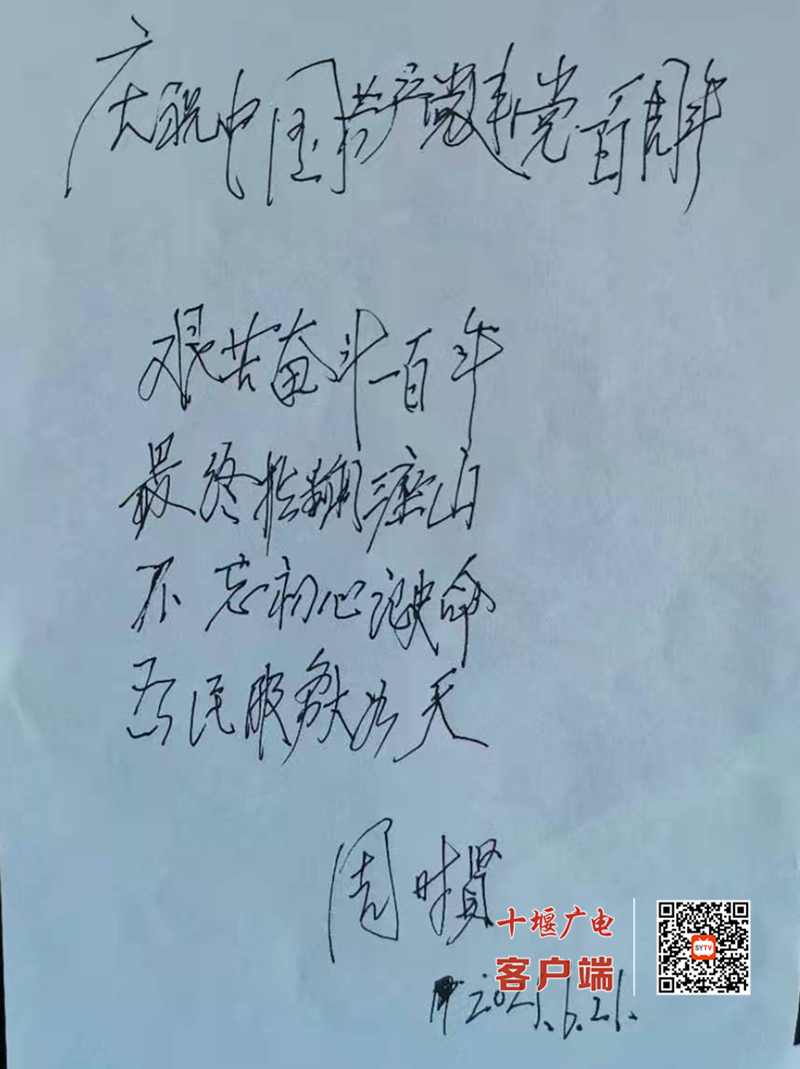 庆祝中国共产党建党百周年
艰苦奋斗百年
最终推翻三座山
不忘初心记使命
为民服务大为天
周时贤
2021.6.21.
十堰广电
客户端
SYTV